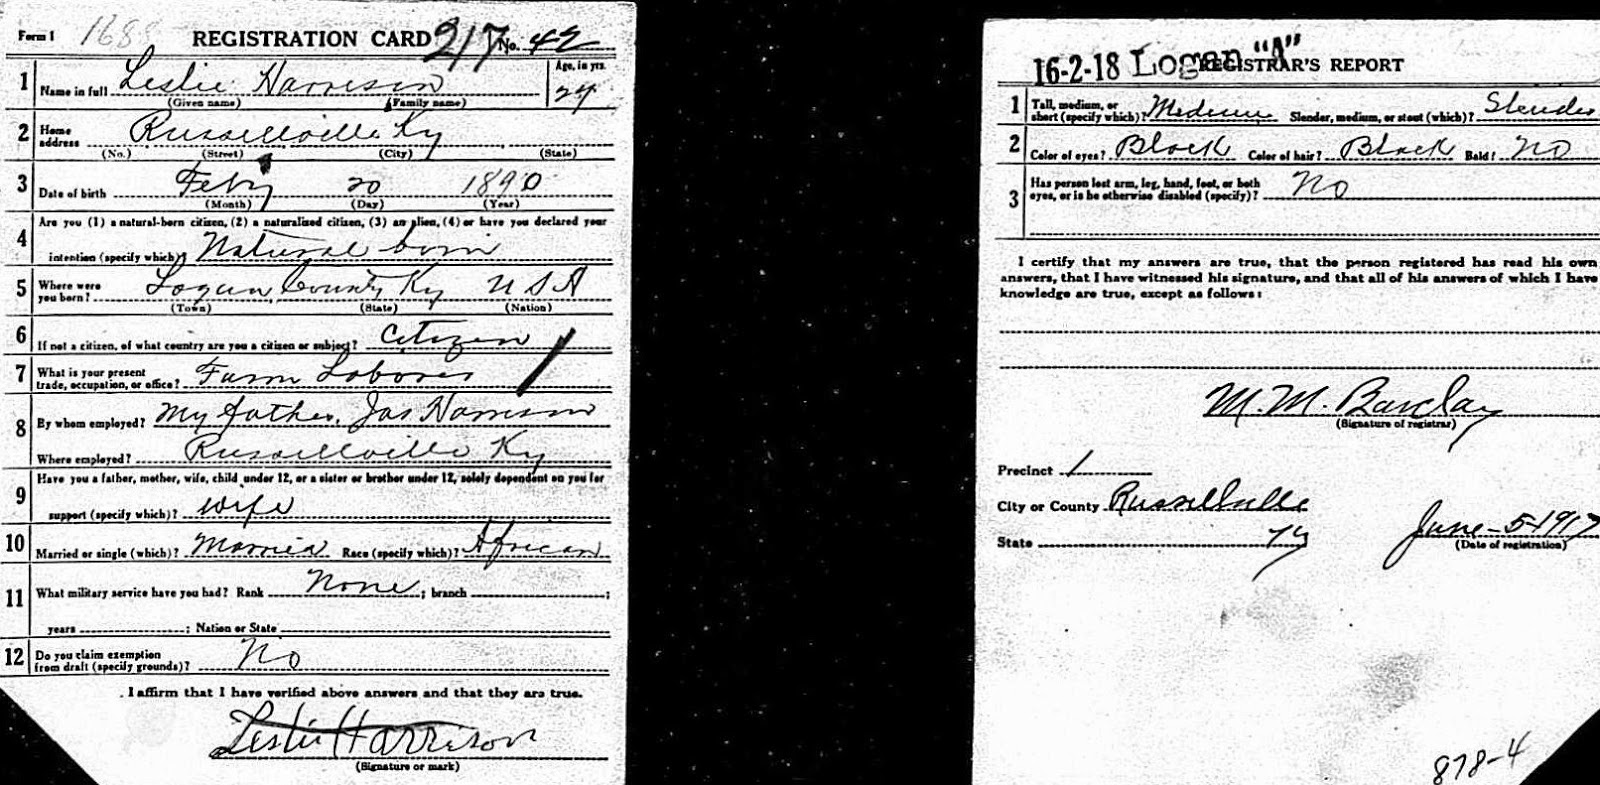 Form 1 1688 REGISTRATION CARD 217 No. 42
1 Name in full Leslie Harrison Age, in yrs. 27
(Given name) (Family name)
2 Home address Russellville Ky
(No.) (Street) (City) (State)
3 Date of birth Feby 20 1890
(Month) (Day) (Year)
4 Are you (1) a natural-born citizen, (2) a naturalized citizen, (3) an alien, (4) or have you declared your
intention (specify which)? Natural born
5 Where were you born? Logan County Ky USA
(Town) (State) (Nation)
6 If not a citizen, of what country are you a citizen or subject? Citizen
7 What is your present trade, occupation, or office? Farm Laborer
8 By whom employed? My father, Jas Harrison
Where employed? Russellville Ky
9 Have you a father, mother, wife, child under 12, or a sister or brother under 12, solely dependent on you for
support (specify which)? wife
10 Married or single (which)? Married Race (specify which)? African
11 What military service have you had? Rank None ; branch ;
years ; Nation or State
12 Do you claim exemption from draft (specify grounds)? No
I affirm that I have verified above answers and that they are true.
Leslie Harrison
(Signature or mark)
16-2-18 Logan "A" REGISTRAR'S REPORT
1 Tall, medium, or short (specify which)? Medium Slender, medium, or stout (which)? Slender
2 Color of eyes? Black Color of hair? Black Bald? No
3 Has person lost arm, leg, hand, foot, or both
eyes, or is he otherwise disabled (specify)? No
I certify that my answers are true, that the person registered has read his own
answers, that I have witnessed his signature, and that all of his answers of which I have
knowledge are true, except as follows:
M. M. Barclay
(Signature of registrar)
Precinct 1
City or County Russellville
State Ky June-5-1917
(Date of registration)
878-4